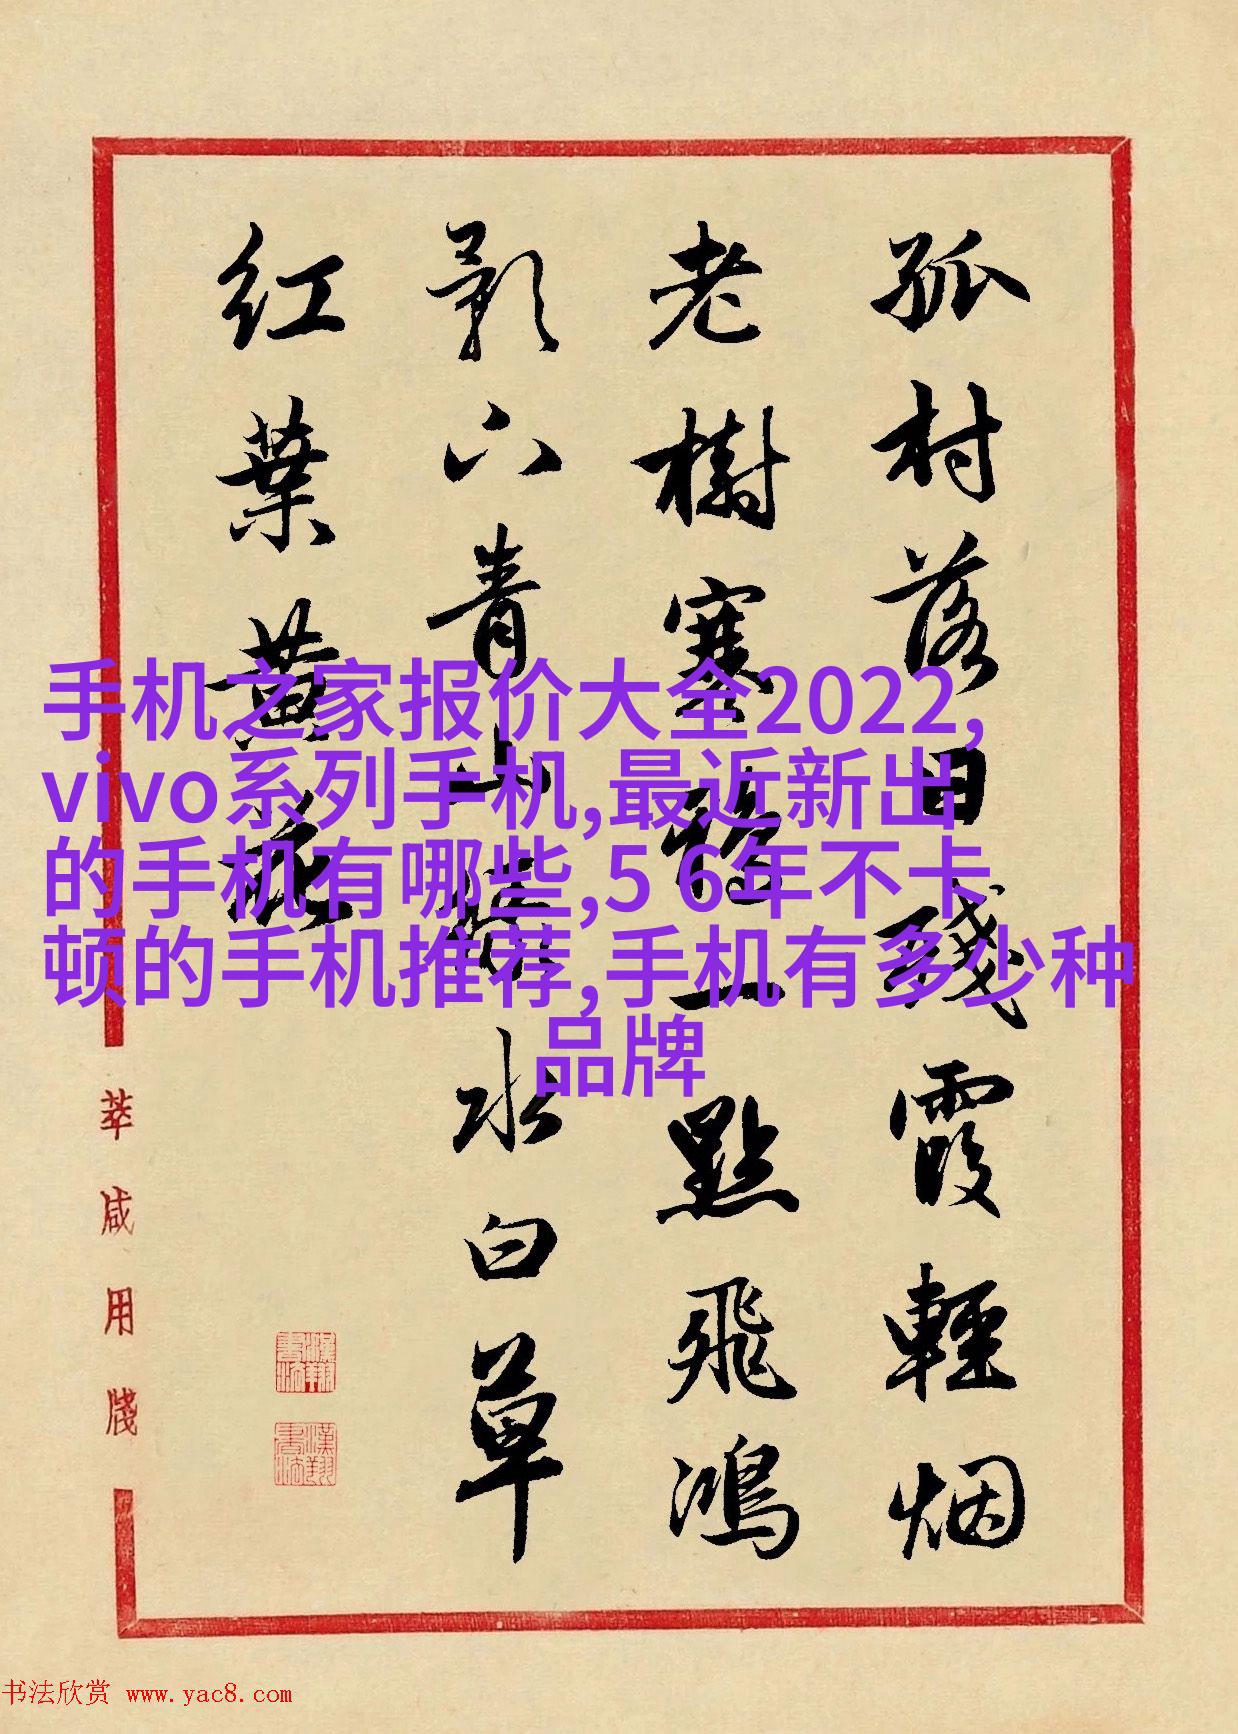 孤村落日殘霞輕烟
老樹寒鴉一點飛鴻
影下青山綠水白草
红葉黄花
手机之家报价大全2022,
vivo系列手机,最近新出
的手机有哪些,5 6年不卡
顿的手机推荐,手机有多少种
品牌
咸用牋
漢翔書法
漢翔書法
书法欣赏 www.yac8.com